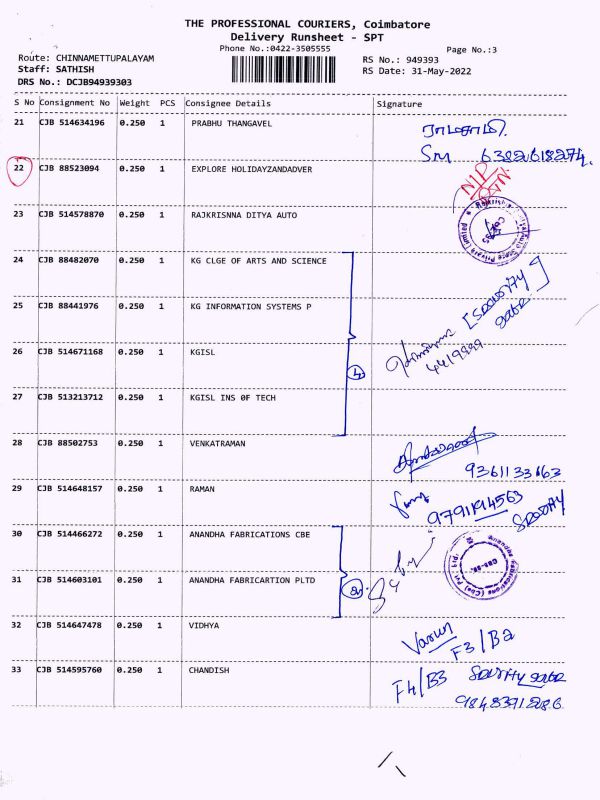 THE PROFESSIONAL COURIERS, Coimbatore
Delivery Runsheet - SPT
Phone No.:0422-3505555
Page No.:3
Route: CHINNAMETTUPALAYAM
RS No.: 949393
Staff: SATHISH
RS Date: 31-May-2022
DRS No.: DCJB94939303
S No Consignment No Weight PCS Consignee Details Signature
21 CJB 514634196 0.250 1 PRABHU THANGAVEL
22 CJB 88523094 0.250 1 EXPLORE HOLIDAYZANDADVER
23 CJB 514578870 0.250 1 RAJKRISNNA DITYA AUTO
24 CJB 88482070 0.250 1 KG CLGE OF ARTS AND SCIENCE
25 CJB 88441976 0.250 1 KG INFORMATION SYSTEMS P
4419999
26 CJB 514671168 0.250 1 KGISL
④
27 CJB 513213712 0.250 1 KGISL INS OF TECH
28 CJB 88502753 0.250 1 VENKATRAMAN
9361133663
29 CJB 514648157 0.250 1 RAMAN
9791914563
30 CJB 514466272 0.250 1 ANANDHA FABRICATIONS CBE
31 CJB 514603101 0.250 1 ANANDHA FABRICARTION PLTD
②
32 CJB 514647478 0.250 1 VIDHYA
Varun
F3/B2
33 CJB 514595760 0.250 1 CHANDISH
F4/B3